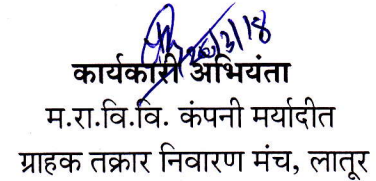 26/3/18
कार्यकारी अभियंता
म.रा.वि.वि. कंपनी मर्यादीत
ग्राहक तक्रार निवारण मंच, लातूर